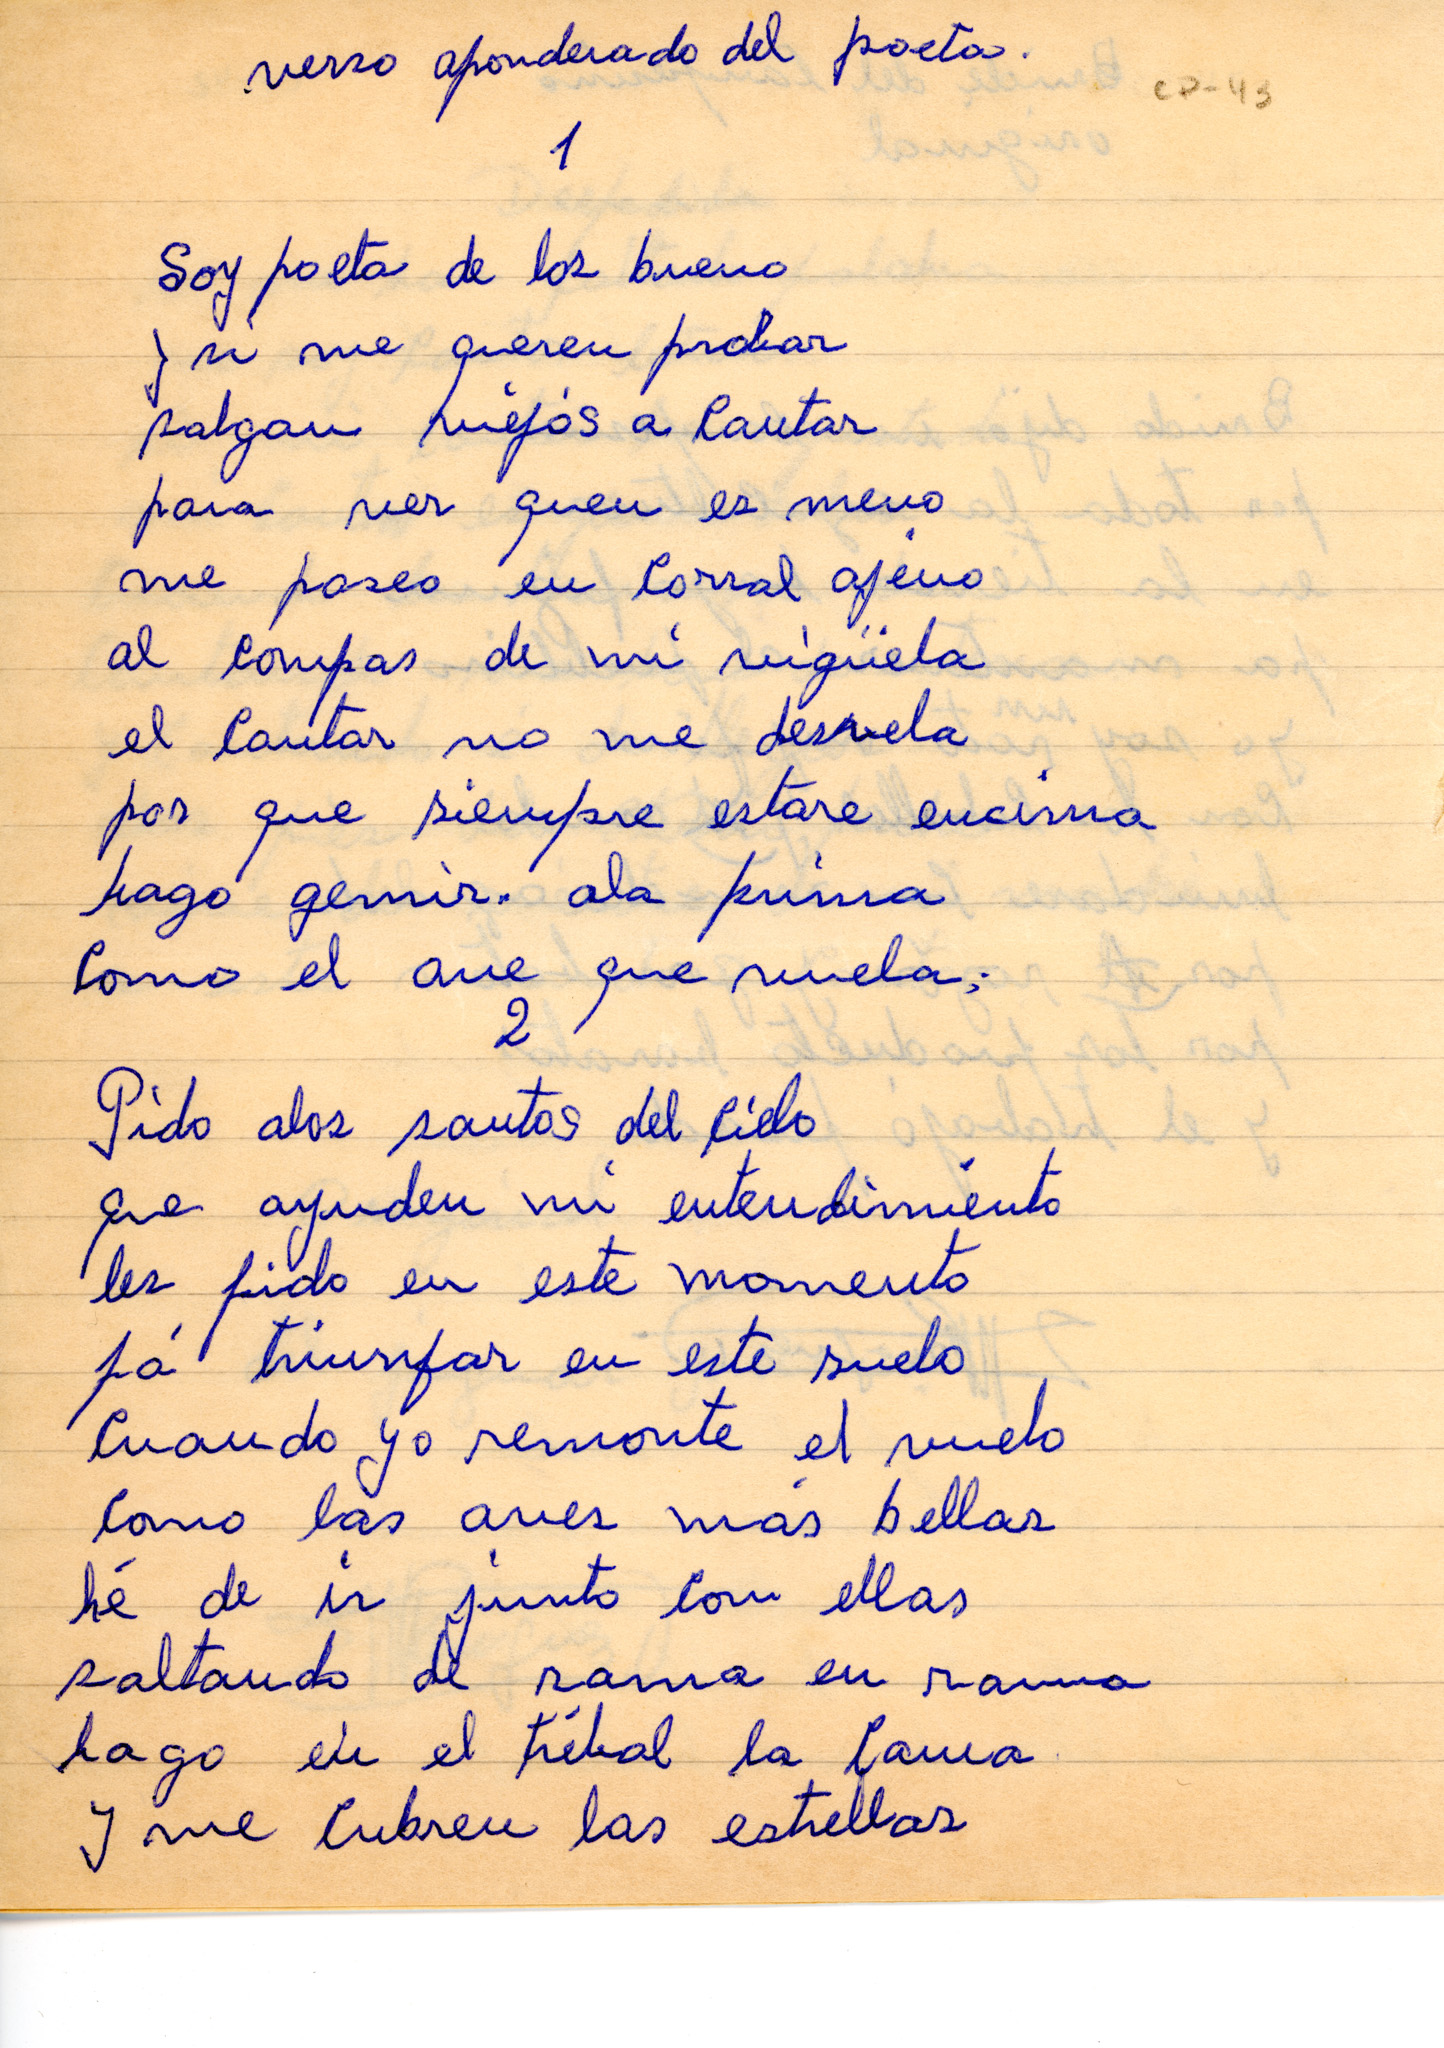 verso aponderado del poeta.
CP-43
1
Soy poeta de los bueno
y si me queren probar
salgan viejós a Cantar
para ver quen es meno
me paseo en Corral ajéno
al Compas de mi vigüela
el Cantar no me desvela
por que siempre estare encima
hago gemir. ala prima
Como el ave que vuela;
2
Pido alos santos del Cielo
que ayuden mi entendimiento
les pido en este momento
pá triunfar en este suelo
Cuando yo remonte el vuelo
Como las aves más bellas
hé de ir junto Con ellas
saltando de rama en rama
hago en el trébal la Cama
y me Cubren las estrellas